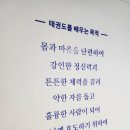 태권도를 배우는 목적
몸과 마음을 단련하여
강인한 정신력과
튼튼한 체력을 길러
약한 자를 돕고
훌륭한 사람이 되어